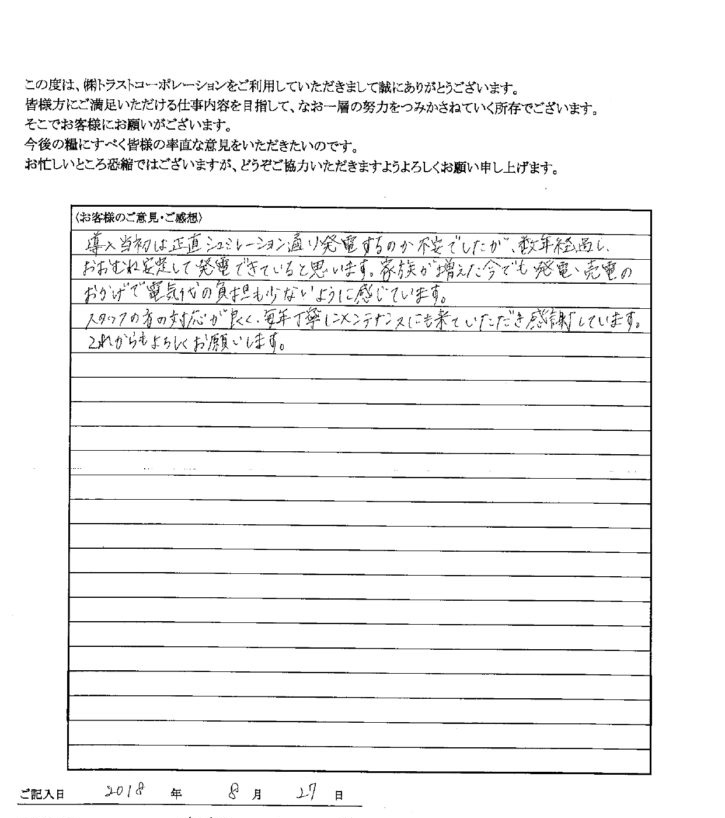 この度は、㈱トラストコーポレーションをご利用していただきまして誠にありがとうございます。
皆様方にご満足いただける仕事内容を目指して、なお一層の努力をつみかさねていく所存でございます。
そこでお客様にお願がございます。
今後の糧にすべく皆様の率直な意見をいただきたいのです。
お忙しいところ恐縮ではございますが、どうぞご協力いただきますようよろしくお願い申し上げます。
〈お客様のご意見・ご感想〉
導入当初は正直シュミレーション通り発電するのか不安でしたが、数年経過し、
おおむね安定して発電できていると思います。家族が増えた今でも発電、売電の
おかげで電気代の負担も少ないように感じています。
スタッフの方の対応が良く、毎年丁寧にメンテナンスにも来ていただき感謝しています。
これからもよろしくお願いします。
ご記入日 2018 年 8 月 27 日